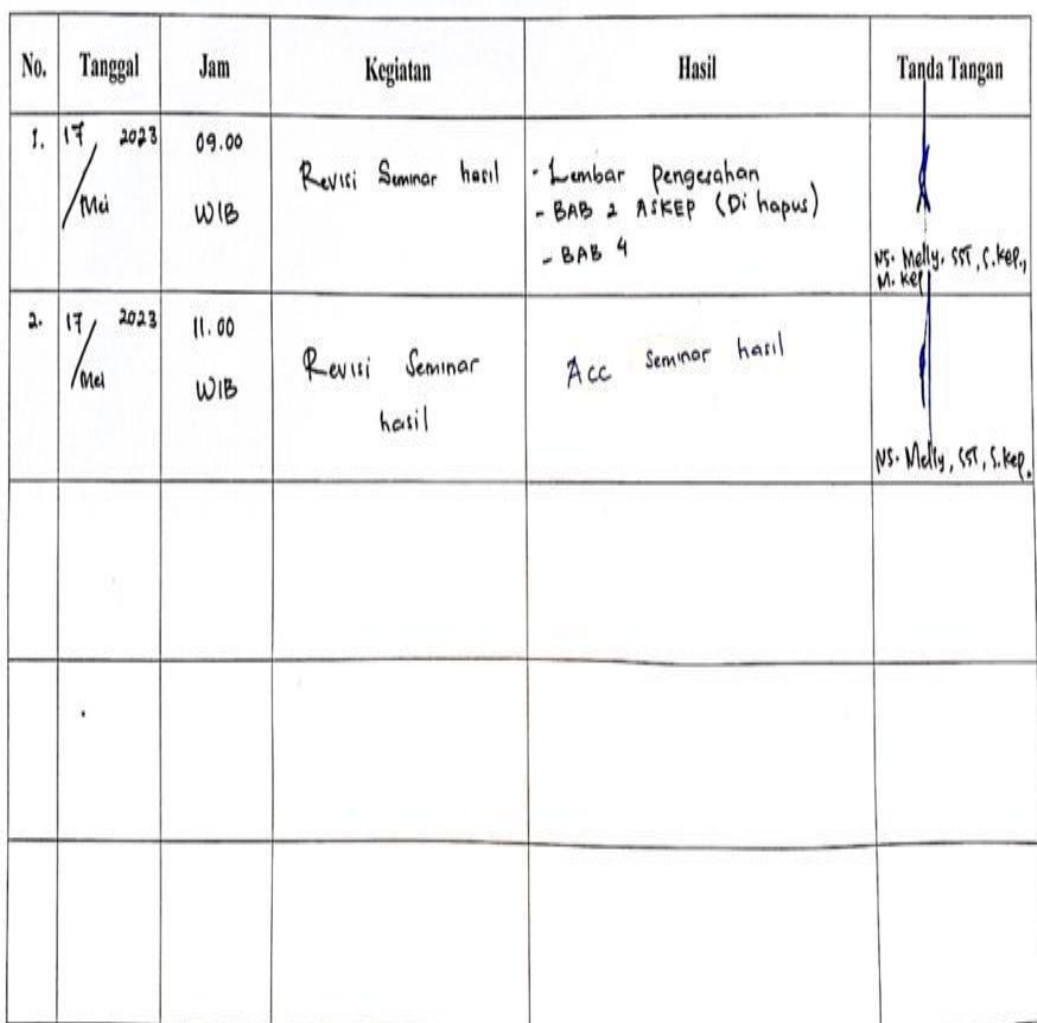 No. Tanggal Jam Kegiatan Hasil Tanda Tangan
1. 17 / Mei 2023
09.00
WIB
Revisi Seminar hasil
- Lembar pengesahan
- BAB 2 ASKEP (Di hapus)
- BAB 4
NS. Melly. SST, S.kep.,
M. kep
2. 17 / Mei 2023
11.00
WIB
Revisi Seminar
hasil
Acc Seminar hasil
NS. Melly, SST, S.kep.